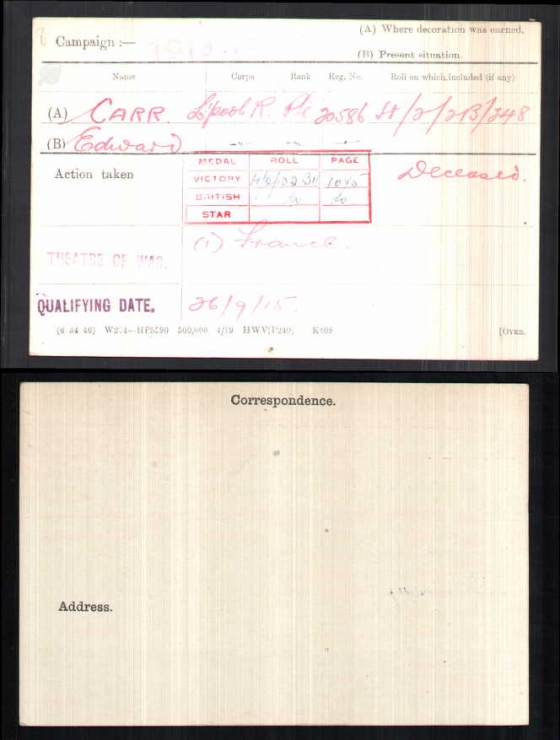 (A) Where decoration was earned.
Campaign :— 1914-15
(B) Present situation.
Name Corps Rank Reg. No. Roll on which included (if any)
(A) CARR L'pool R. Pte 20586 H/2/2B/248
(B) Edward —"— —"— —"—
Action taken
MEDAL ROLL PAGE
VICTORY 1045
BRITISH do do
STAR
Deceased.
THEATRE OF WAR.
(1) France.
QUALIFYING DATE.
26/9/15.
(6 34 46) W234—HP5590 500,000 4/19 HWV(P240) K608
[OVER.
Correspondence.
Address.